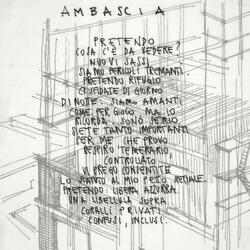 AMBASCIA
PRETENDO
COSA C'È DA VEDERE?
NUOVI SASSI
SIAMO PERICOLI TREMANTI.
PRETENDO RIFUGIO
CI SFIDATE DI GIORNO
DI NOTE: SIAMO AMANTI
COME PER GIOCO MA IO
RICORDA: SONO SERIO
SIETE TANTO IMPORTANTI
PER ME CHE PROVO
RESPIRO TEMERARIO
CONTROLLATO,
VI PREGO CONSENTITE
LO AL MIO PETO
PRETENDO: LIBERA AZZURRA
UNA LIBELLULA SOPRA
CORALLI PRIVATI
CONFUSI, INCLUSI.